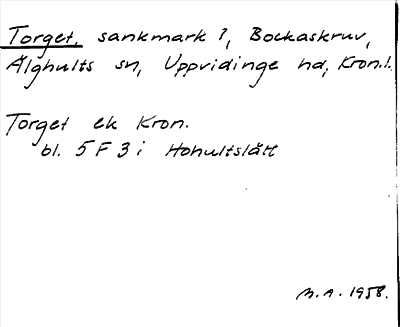 Torget, sankmark?, Bockaskruv,
Älghults sn, Uppvidinge hd, Kron.l.
Torget ek Kron.
bl. 5 F 3 i Hohultslätt
M.A. 1958.